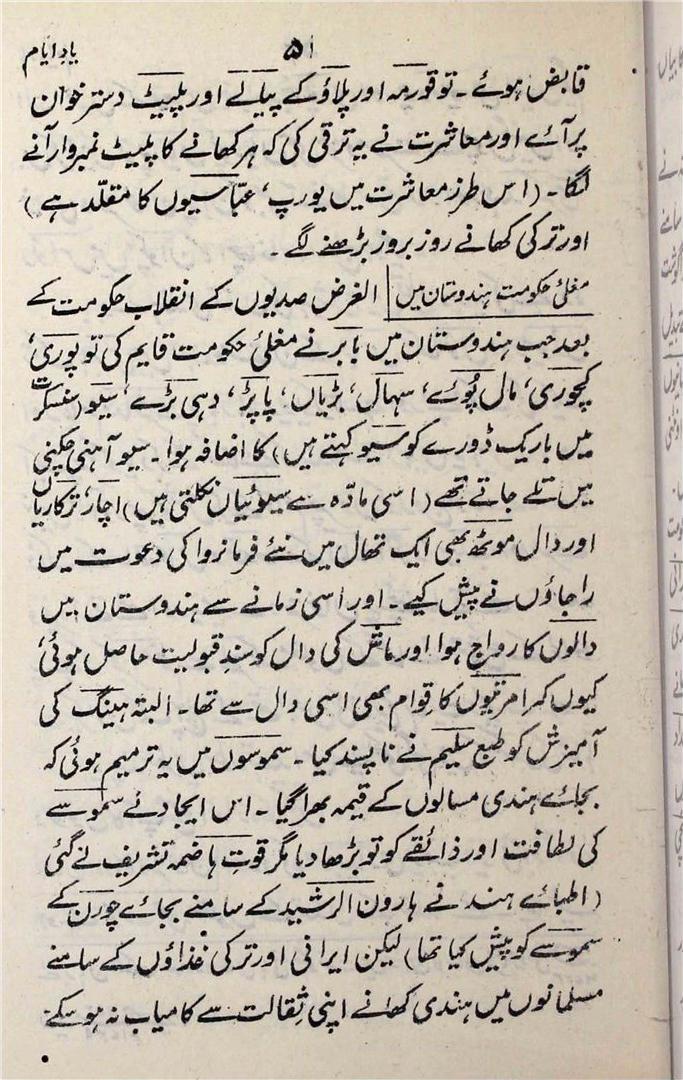 ۵۱ یادِ ایام
قابض ہوئے۔ تو قورمہ اور پلاؤ کے پیالے اور پلیٹ دسترخوان
پر آئے اور معاشرت نے یہ ترقی کی کہ ہر کھانے کا پلیٹ نمبروار آنے
لگا۔ (اس طرز معاشرت میں یورپ، عبّاسیوں کا مقلّد ہے)
اور ترکی کھانے روز بروز بڑھنے لگے۔
مغلئی حکومت ہندوستان میں | الغرض صدیوں کے انقلاب حکومت کے
بعد جب ہندوستان میں بابر نے مغلئی حکومت قایم کی تو پوری،
کچوری، مال پُوئے، سہال، بڑیاں، پاپڑ، دہی بڑے، سیلو (سنسکرت
میں باریک ڈورے کو سیو کہتے ہیں) کا اضافہ ہوا۔ سیو آہنی چکنی
میں تلے جاتے تھے (اسی مادّہ سے سیلوئیاں نکلتی ہیں) اچار، ترکاریاں
اور دال موٹھ بھی ایک تھال میں نئے فرمانروا کی دعوت میں
راجاؤں نے پیش کیے۔ اور اسی زمانے سے ہندوستان میں
دالوں کا رواج ہوا اور ماش کی دال کو سندِ قبولیت حاصل ہوئی،
کیوں کہ امرتیوں کا قوام بھی اسی دال سے تھا۔ البتہ ہینگ کی
آمیزش کو طبع سلیم نے ناپسند کیا۔ سموسوں میں یہ ترمیم ہوئی کہ
بجائے ہندی مسالوں کے قیمہ بھرا گیا۔ اس ایجاد نے سموسے
کی لطافت اور ذائقے کو تو بڑھا دیا مگر قوتِ ہاضمہ تشریف لے گئی
(اطبائے ہند نے ہارون الرشید کے سامنے بجائے چورن کے
سموسے کو پیش کیا تھا) لیکن ایرانی اور ترکی غذاؤں کے سامنے
مسلمانوں میں ہندی کھانے اپنی ثِقالت سے کامیاب نہ ہو سکے۔